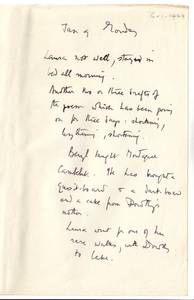 Jan 9 Monday
Laura not well, stayed in
bed all morning.
Another two or three drafts of
the poem which has been going
on for three days: shortening,
lengthening, shortening.
Beryl
Camblet. He has brought a
bread-board & a
and a cake from Dorothy's
mother.
Laura went for one of her
rare walks, with Dorothy
to Lake.